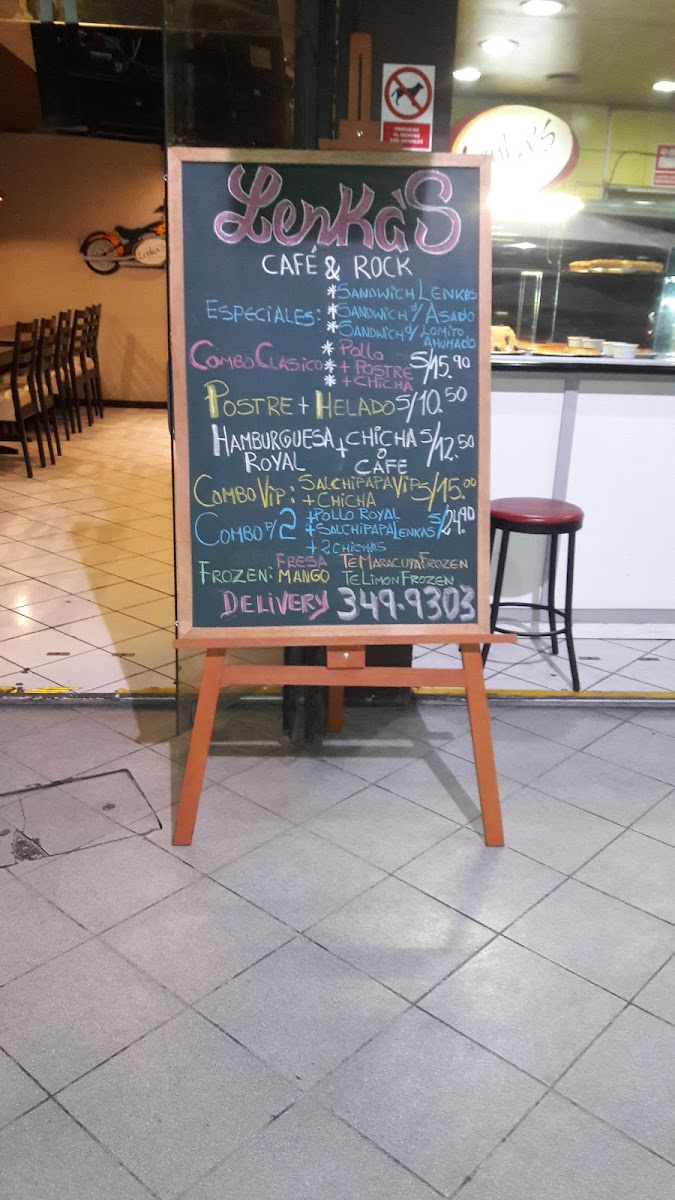 Lenka'S
CAFÉ & ROCK
ESPECIALES: * SANDWICH LENKAS
* SANDWICH d/ ASADO
* SANDWICH d/ LOMITO AHUMADO
COMBO CLASICO * POLLO
* + POSTRE S/15.90
* + CHICHA
POSTRE + HELADO S/10.50
HAMBURGUESA ROYAL + CHICHA O CAFE S/12.50
COMBO VIP: SALCHIPAPA VIP S/15.00
+ CHICHA
COMBO P/2 + POLLO ROYAL
+ SALCHIPAPA LENKAS S/24.90
+ 2 CHICHAS
FROZEN: FRESA TE MARACUYA FROZEN
MANGO TE LIMON FROZEN
DELIVERY 349-9303
Lenka's
Lenka's